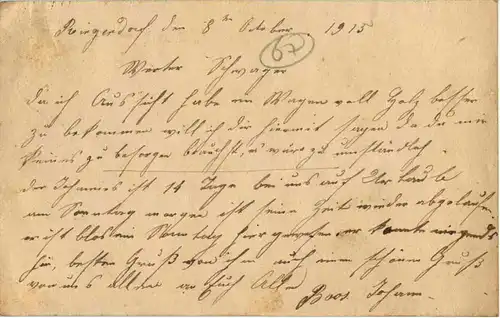 den 8ten October 1915
67
Werter Schwager
da ich Aussicht habe ein Wagen voll Holz besser
zu bekommen will ich dir hiermit sagen da du mir
keines zu besorgen brauchst, es wäre zu umständlich.
der Johannes ist 14 Tage bei uns auf Urlaub
am Sonntag morgen ist seine Zeit wieder abgelaufen
er ist blos ein Sonntag hier gewesen, er konnte nirgends
hin, besten Gruß von ihm auch einen schönen Gruß
von uns allen an Euch Alle
Boos Johann